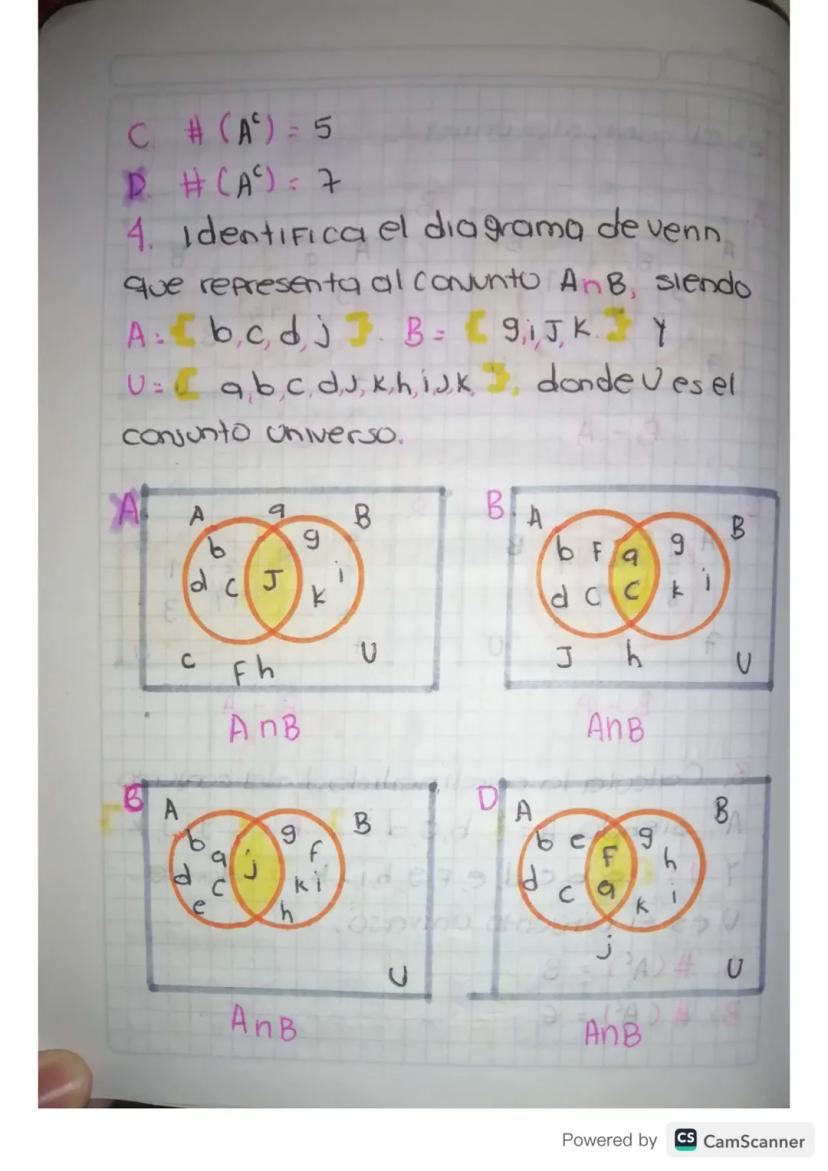 C. # (Aᶜ) = 5
D. # (Aᶜ) = 7
4. Identifica el diagrama de venn
que representa al conjunto A∩B, siendo
A = { b, c, d, j }. B = { g, i, J, K. } Y
U = { a, b, c, d, J, k, h, i, J, k, }, donde U es el
conjunto universo.
A.
A a B
b g
d c J k i
c F h U
A∩B
B.
A B
b F a g
d c c k i
J h U
A∩B
B
A B
b a j g f
d c k i
e h
U
A∩B
D
A B
b e F g h
d c a k i
j
U
A∩B
Powered by CS CamScanner